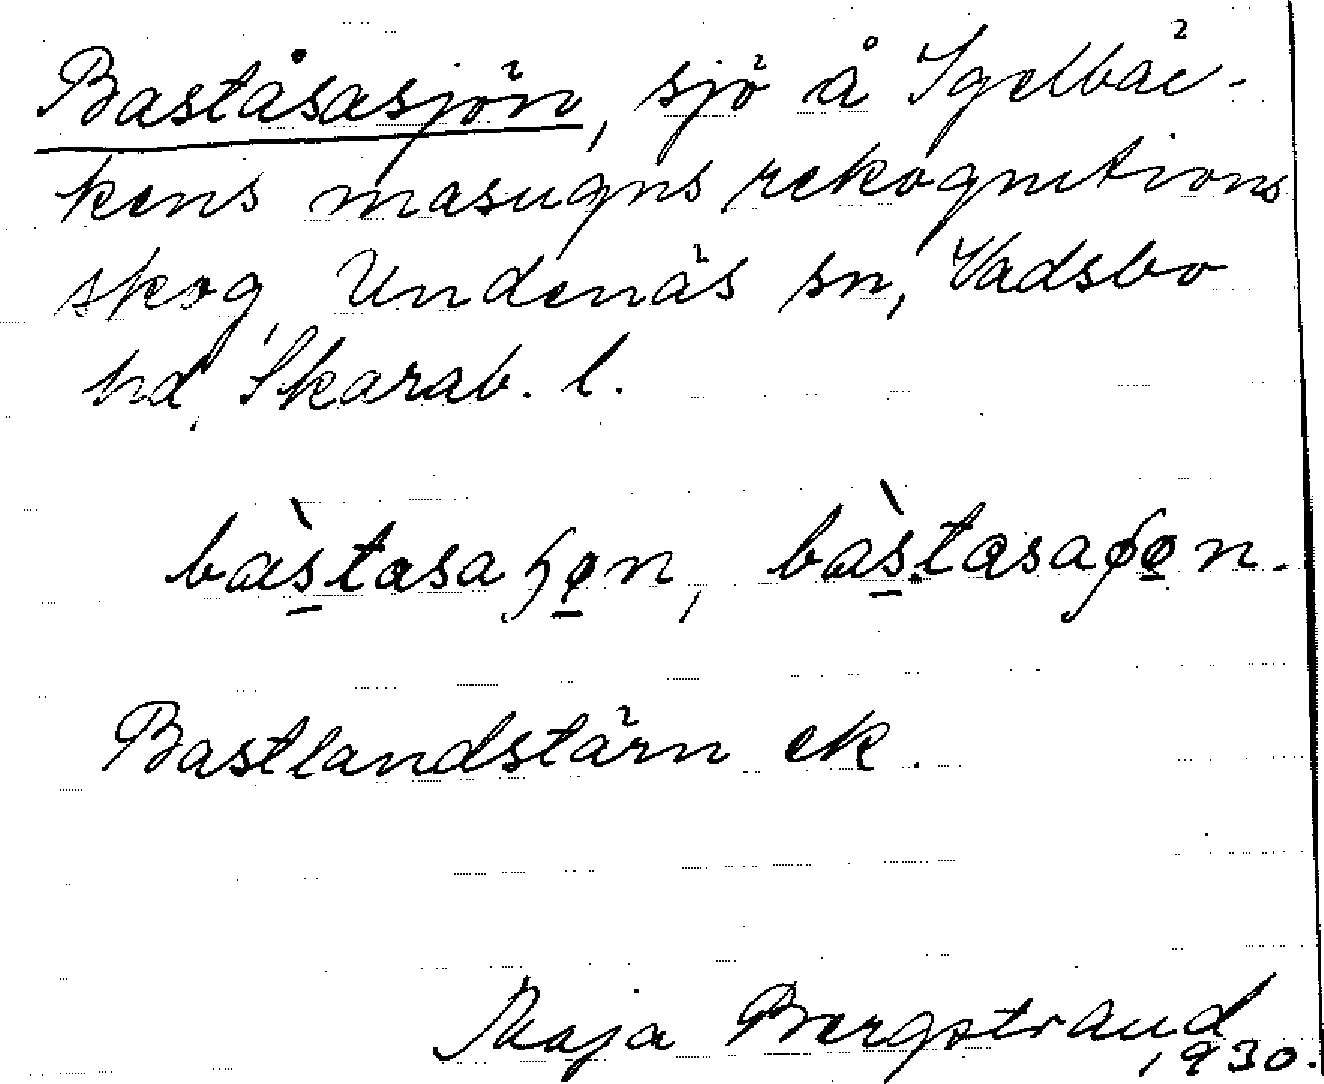 Baståsasjön, sjö å Igelbäc-
kens masugns rekognitions
skog, Undenäs sn, Vadsbo
hd, Skarab. l.
Bastlandstärn ek.
Maja Bergstrand
1930.